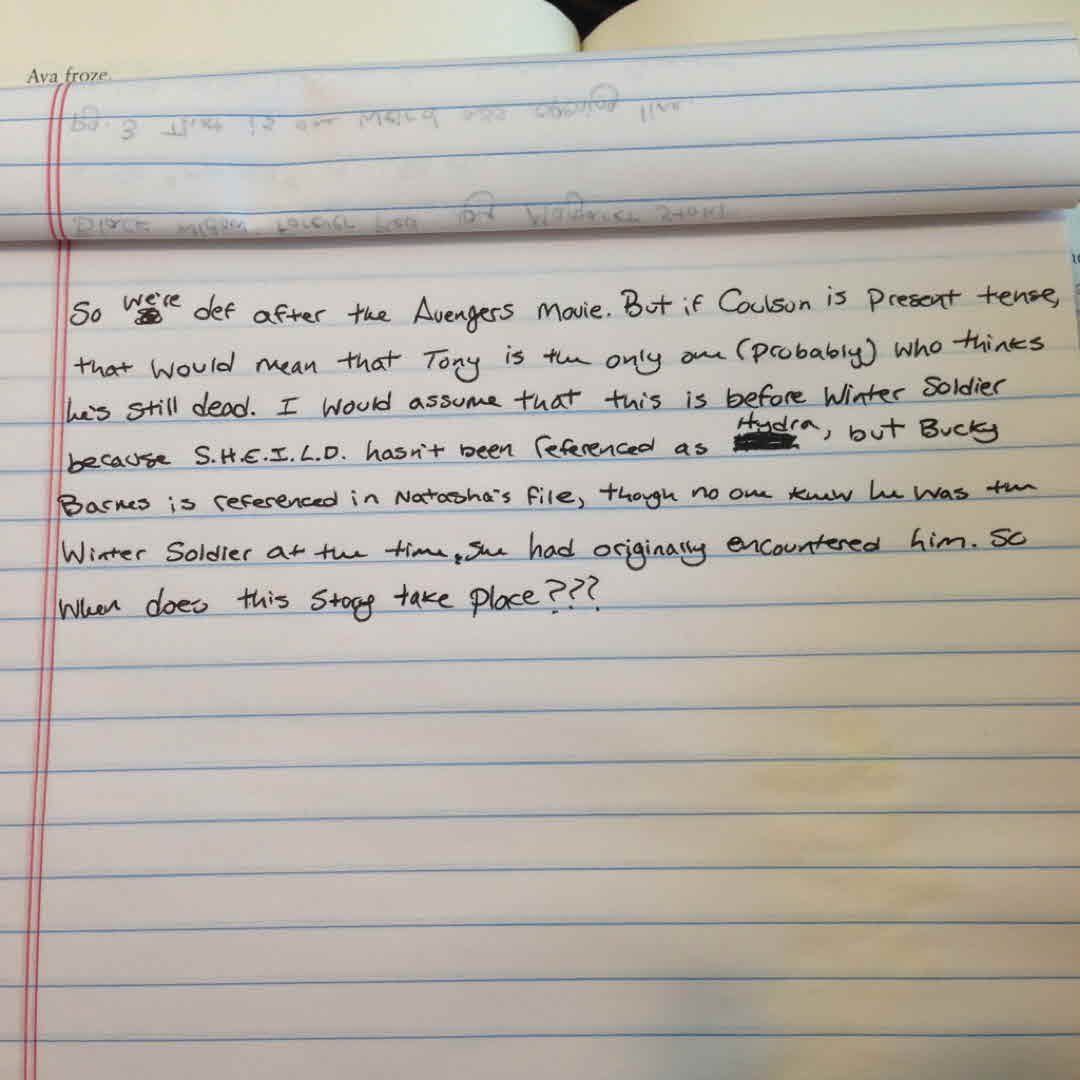 Ava froze.
So we're def after the Avengers Movie. But if Coulson is present tense,
that would mean that Tony is the only one (probably) who thinks
he's still dead. I would assume that this is before Winter Soldier
because S.H.E.I.L.D. hasn't been referenced as Hydra, but Bucky
Barnes is referenced in Natasha's file, though no one knew he was the
Winter Soldier at the time, she had originally encountered him. So
when does this story take place???